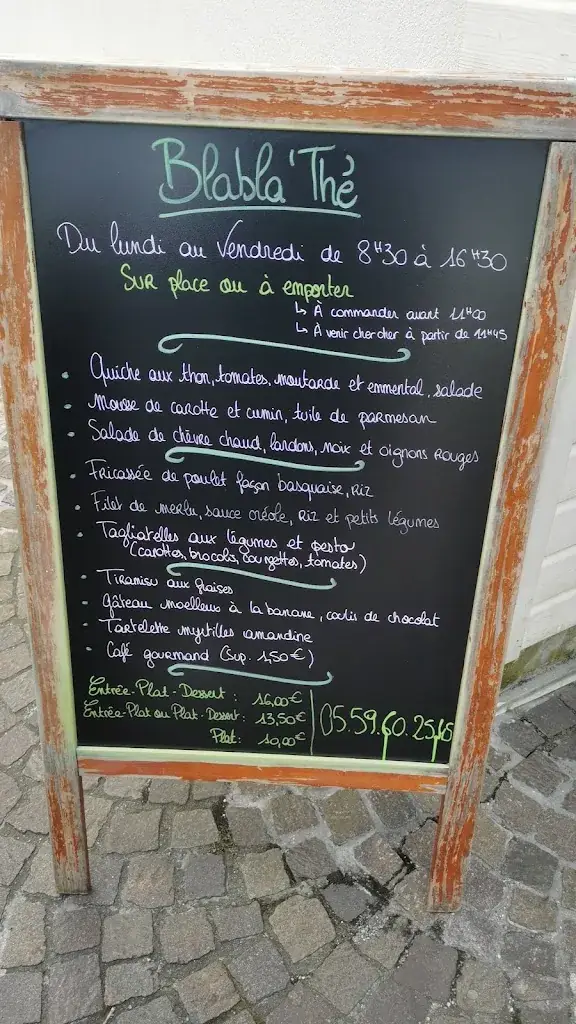 Blabla'Thé
Du lundi au Vendredi de 8H30 à 16H30
Sur place ou à emporter
↳ À commander avant 11H00
↳ À venir chercher à partir de 11H45
• Quiche aux thon, tomates, moutarde et emmental, salade
• Mousse de carotte et cumin, tuile de parmesan
• Salade de chèvre chaud, lardons, noix et oignons rouges
• Fricassée de poulet façon basquaise, riz
• Filet de merlu, sauce créole, riz et petits légumes
• Tagliatelles aux légumes et pesto
(carottes, brocolis, courgettes, tomates)
• Tiramisu aux fraises
• Gâteau moelleux à la banane, coulis de chocolat
• Tartelette myrtilles amandine
• Café gourmand (sup. 1,50€)
Entrée-Plat-Dessert : 16,00€
Entrée-Plat ou Plat-Dessert : 13,50€
Plat : 10,00€
05.59.60.25.65